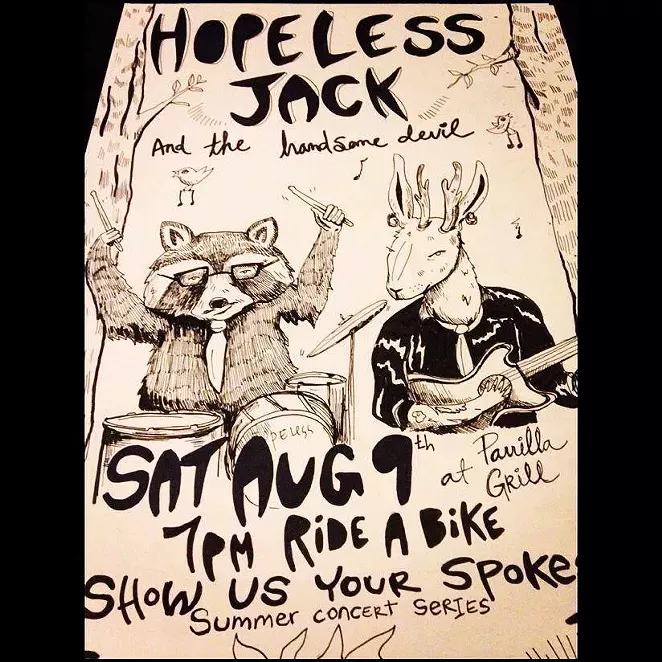 HOPELESS
JACK
And the handsome devil
PELESS
SAT AUG 9th
at Parrilla
Grill
7PM RIDE A BIKE
SHOW US YOUR SPOKES
Summer CONCERT SERIES